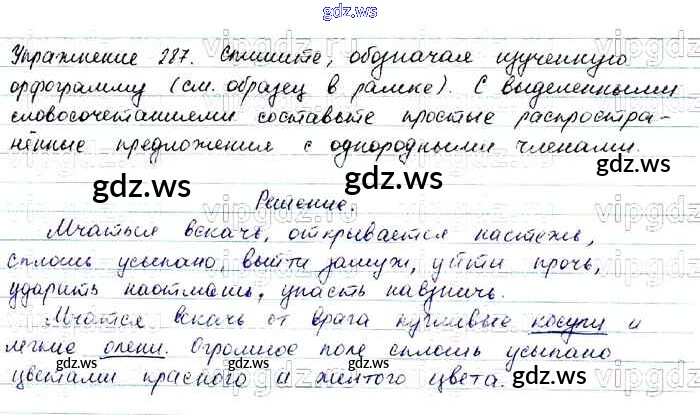 gdz.ws
Упражнение 287. Спишите, обозначая изученную
орфограмму (см. образец в рамке). С выделенными
словосочетаниями составьте простые распростра-
нённые предложения с однородными членами.
gdz.ws gdz.ws
Решение.
Мчаться вскачь, открывается настежь,
сплошь усыпано, выйти замуж, уйти прочь,
ударить наотмашь, упасть навзничь.
gdz.ws gdz.ws
Мчатся вскачь от врага пугливые косули и
легкие олени. Огромное поле сплошь усыпано
цветами красного и желтого цвета.
gdz.ws gdz.ws